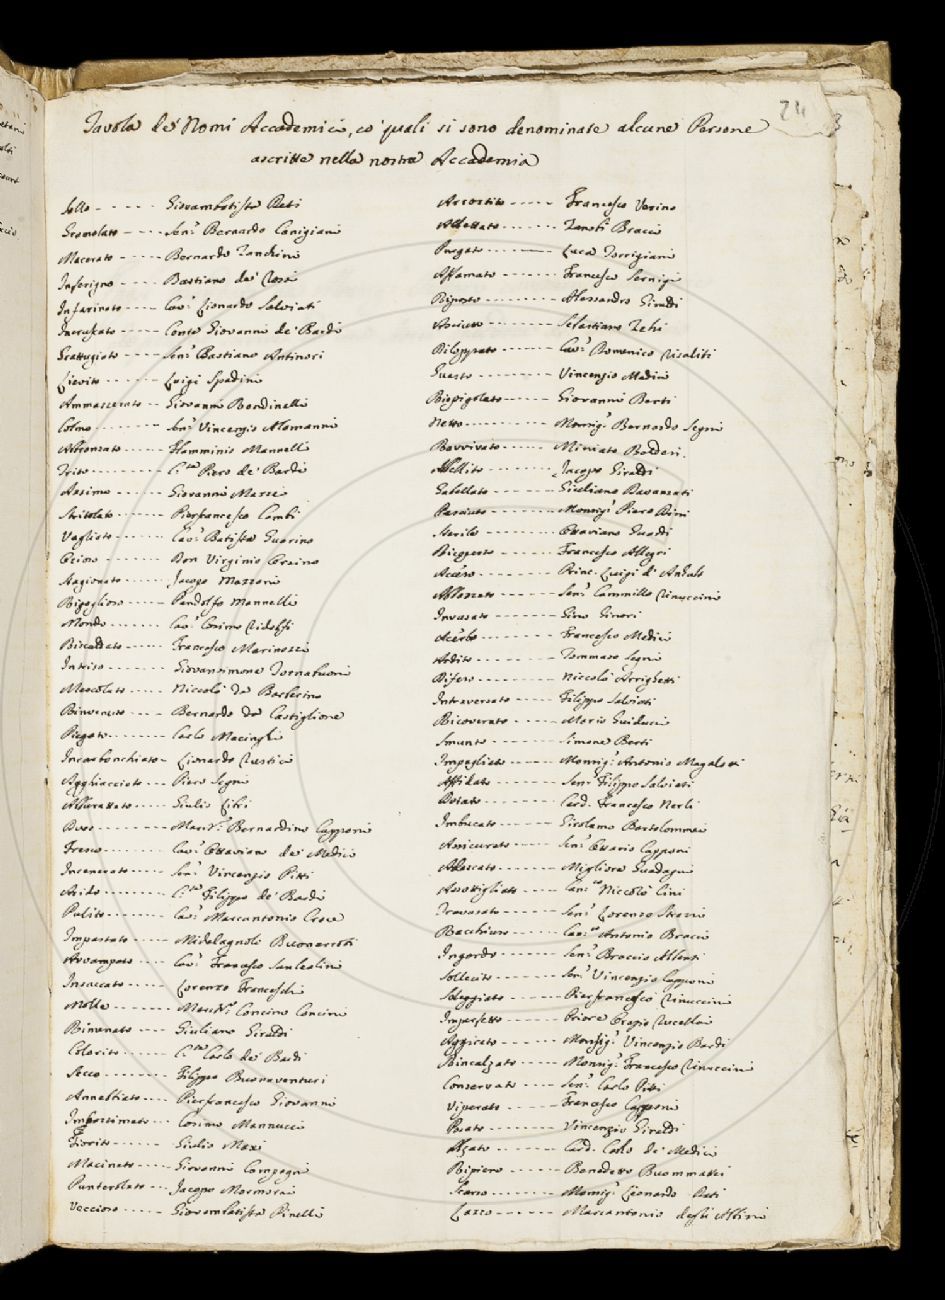 24
Tavola de' Nomi Accademici, co' quali si sono denominate alcune Persone
ascritte nella nostra Accademia
Sollo - - - - - - Giovambatista Deti
Gramolato - - - - Sen.r Bernardo Canigiani
Macerato - - - - - Bernardo Zanchini
Inferigno - - - - Bastiano de' Rossi
Infarinato - - - - Cav.r Lionardo Salviati
Incruscato - - - - Conte Giovanni de' Bardi
Grattugiato - - - - Sen.r Bastiano Antinori
Lievito - - - - - - Luigi Spadini
Ammazzerato - - - Giovanni Rondinelli
Colmo - - - - - - Sen.r Vincenzio Alamanni
Abbronzato - - - - Flamminio Mannelli
Trito - - - - - - C.te Piero de' Bardi
Assimo - - - - - - Giovanni Mazzei
Stritolato - - - - Pierfrancesco Cambi
Vagliato - - - - - Cav.r Batista Guarino
Ozioso - - - - - - Don Virginio Orsino
Stagionato - - - - Jacopo Mazzoni
Rigoglioso - - - - Pandolfo Mannelli
Mondo - - - - - - Cav.r Cosimo Ridolfi
Riscaldato - - - - Francesco Marinozzi
Intriso - - - - - - Giovansimone Tornabuoni
Mescolato - - - - Niccolò da Barberino
Rinvenuto - - - - Bernardo da Castiglione
Piegato - - - - - Carlo Macinghi
Incarbonchiato - Lionardo Rustici
Agghiacciato - - - Piero Segni
Abburattato - - - Giulio Libri
- - - - - - March.e Bernardino Capponi
Fresco - - - - - - Cav.r Ottaviano de' Medici
Incenerato - - - - Sen.r Vincenzio Pitti
Arido - - - - - - C.te Filippo de' Bardi
Pulito - - - - - - Cav.r Marcantonio
Impastato - - - - Midelagnolo Buonarroti
Avvampato - - - - Cav.r Francesco Sanleolini
Insaccato - - - - Lorenzo Franceschi
Molle - - - - - - March.e Concino Concini
Rimenato - - - - Giuliano Giraldi
Colorito - - - - - C.te Carlo de' Bardi
Secco - - - - - - Filippo Buonaventuri
Annebbiato - - - - Pierfrancesco Giovanni
- - - - Cosimo Mannucci
Fiorito - - - - - - Giulio Mazi
Macinato - - - - Giovanni Compagni
Punterolato - - - Jacopo Mormorai
Veccioso - - - - - Giovambatista Pinelli
Arrostito - - - - - Francesco Verino
Allettato - - - - - Zanobi Bracci
Purgato - - - - - - Luca Torrigiani
Affamato - - - - - Francesco Sernigi
Riposto - - - - - - Alessandro Giraldi
Asciutto - - - - - - Sebastiano Zehi
- - - - - - Cav.r Domenico Risaliti
Guasto - - - - - - Vincenzio Medici
Rispigolato - - - - Giovanni Berti
Netto - - - - - - Monsig.r Bernardo Segni
Ravvivato - - - - - Miniato Bolderi
Abbellito - - - - - Jacopo Giraldi
Gabellato - - - - - Giuliano Davanzati
Pasciuto - - - - - Monsig.r Piero Dini
Sterile - - - - - - Ottaviano Guardi
- - - - - - Francesco Allegri
Acceso - - - - - - Princ. Luigi d' Anhalt
Abbozzato - - - - - Sen.r Cammillo Rinuccini
Invasato - - - - - Gino Ginori
Acerbo - - - - - - Francesco Medici
Ardito - - - - - - Tommaso Segni
Rifatto - - - - - - Niccolò Arrighetti
Intraversato - - - - Filippo Salviati
Ricoverato - - - - - Mario Guiducci
Smunto - - - - - - Simone Berti
Impagliato - - - - Monsig.r Antonio Magalotti
Affidato - - - - - Sen.r Filippo Salviati
- - - - - - Card. Francesco Nerli
Imbucato - - - - - Girolamo Bartolommei
Assicurato - - - - Sen.r Ottavio Capponi
- - - - - Migliore Guadagni
Assottigliato - - - Can.co Niccolò Cini
Travasato - - - - - Sen.r Lorenzo Strozzi
Bacchiato - - - - - Can.co Antonio Bracci
Ingordo - - - - - - Sen.r Braccio Alberti
Sollecito - - - - - Sen.r Vincenzio Capponi
Soleggiato - - - - - Pierfrancesco Rinuccini
Imperfetto - - - - - Priore Orazio Rucellai
- - - - - Monsig.r Vincenzio Bardi
Rincalzato - - - - - Monsig.r Francesco Rinuccini
Conservato - - - - Sen.r Carlo Pitti
Viperato - - - - - - Francesco Capponi
- - - - - - Vincenzio Giraldi
Alzato - - - - - - Card. Carlo de' Medici
Ripieno - - - - - - Benedetto Buommattei
Scarso - - - - - - Monsig.r Leonardo Dati
Lazzo - - - - - - Marcantonio degli Albizi